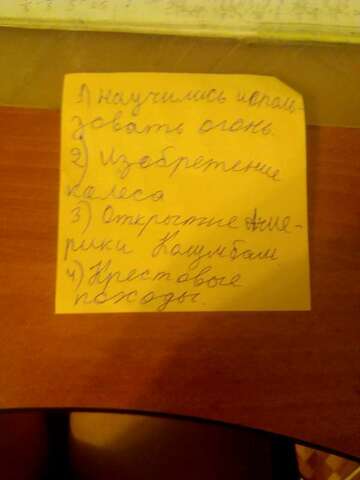 1) научились исполь-
зовать огонь.
2) Изобретение
колеса
3) Открытие Аме-
рики Колумбом
4) Крестовые
походы.